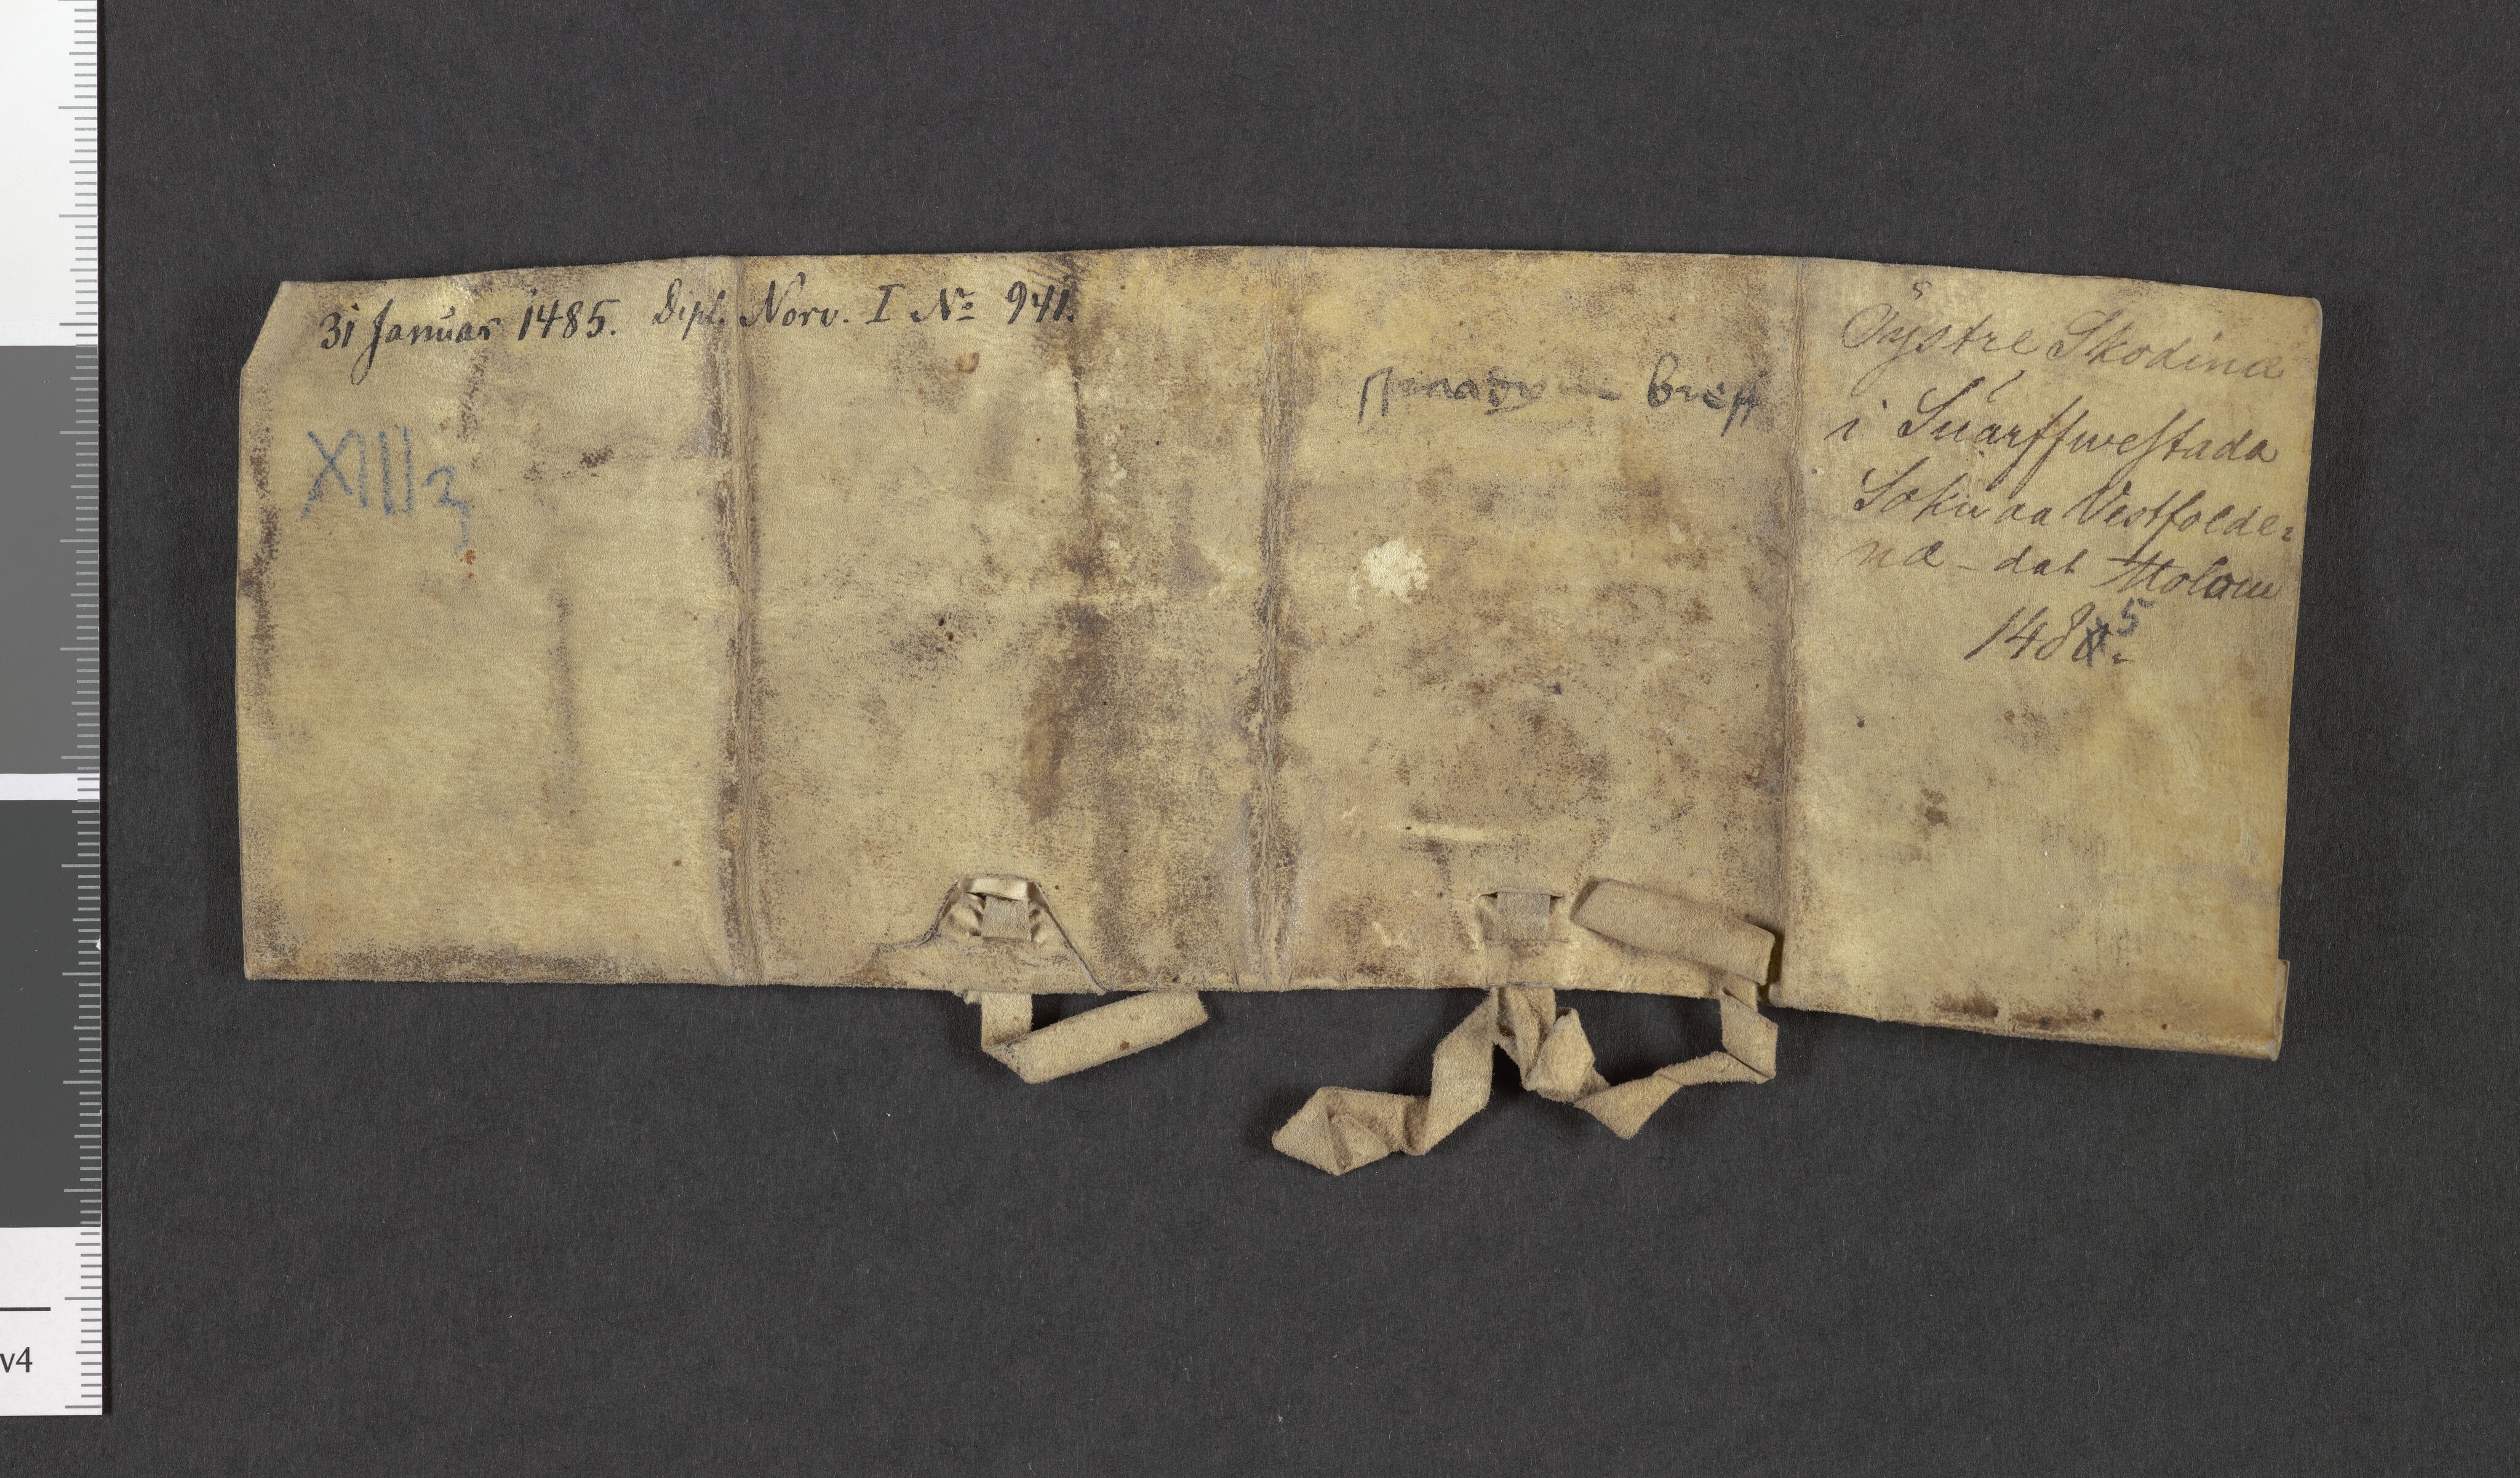 31 Januar 1485. Dipl. Norv. I No 941.
XIII 3
breff
Øystre Skodina
i Suarffwestada
Sokn aa Vestfolde=
na - dat Molom
1485
v4